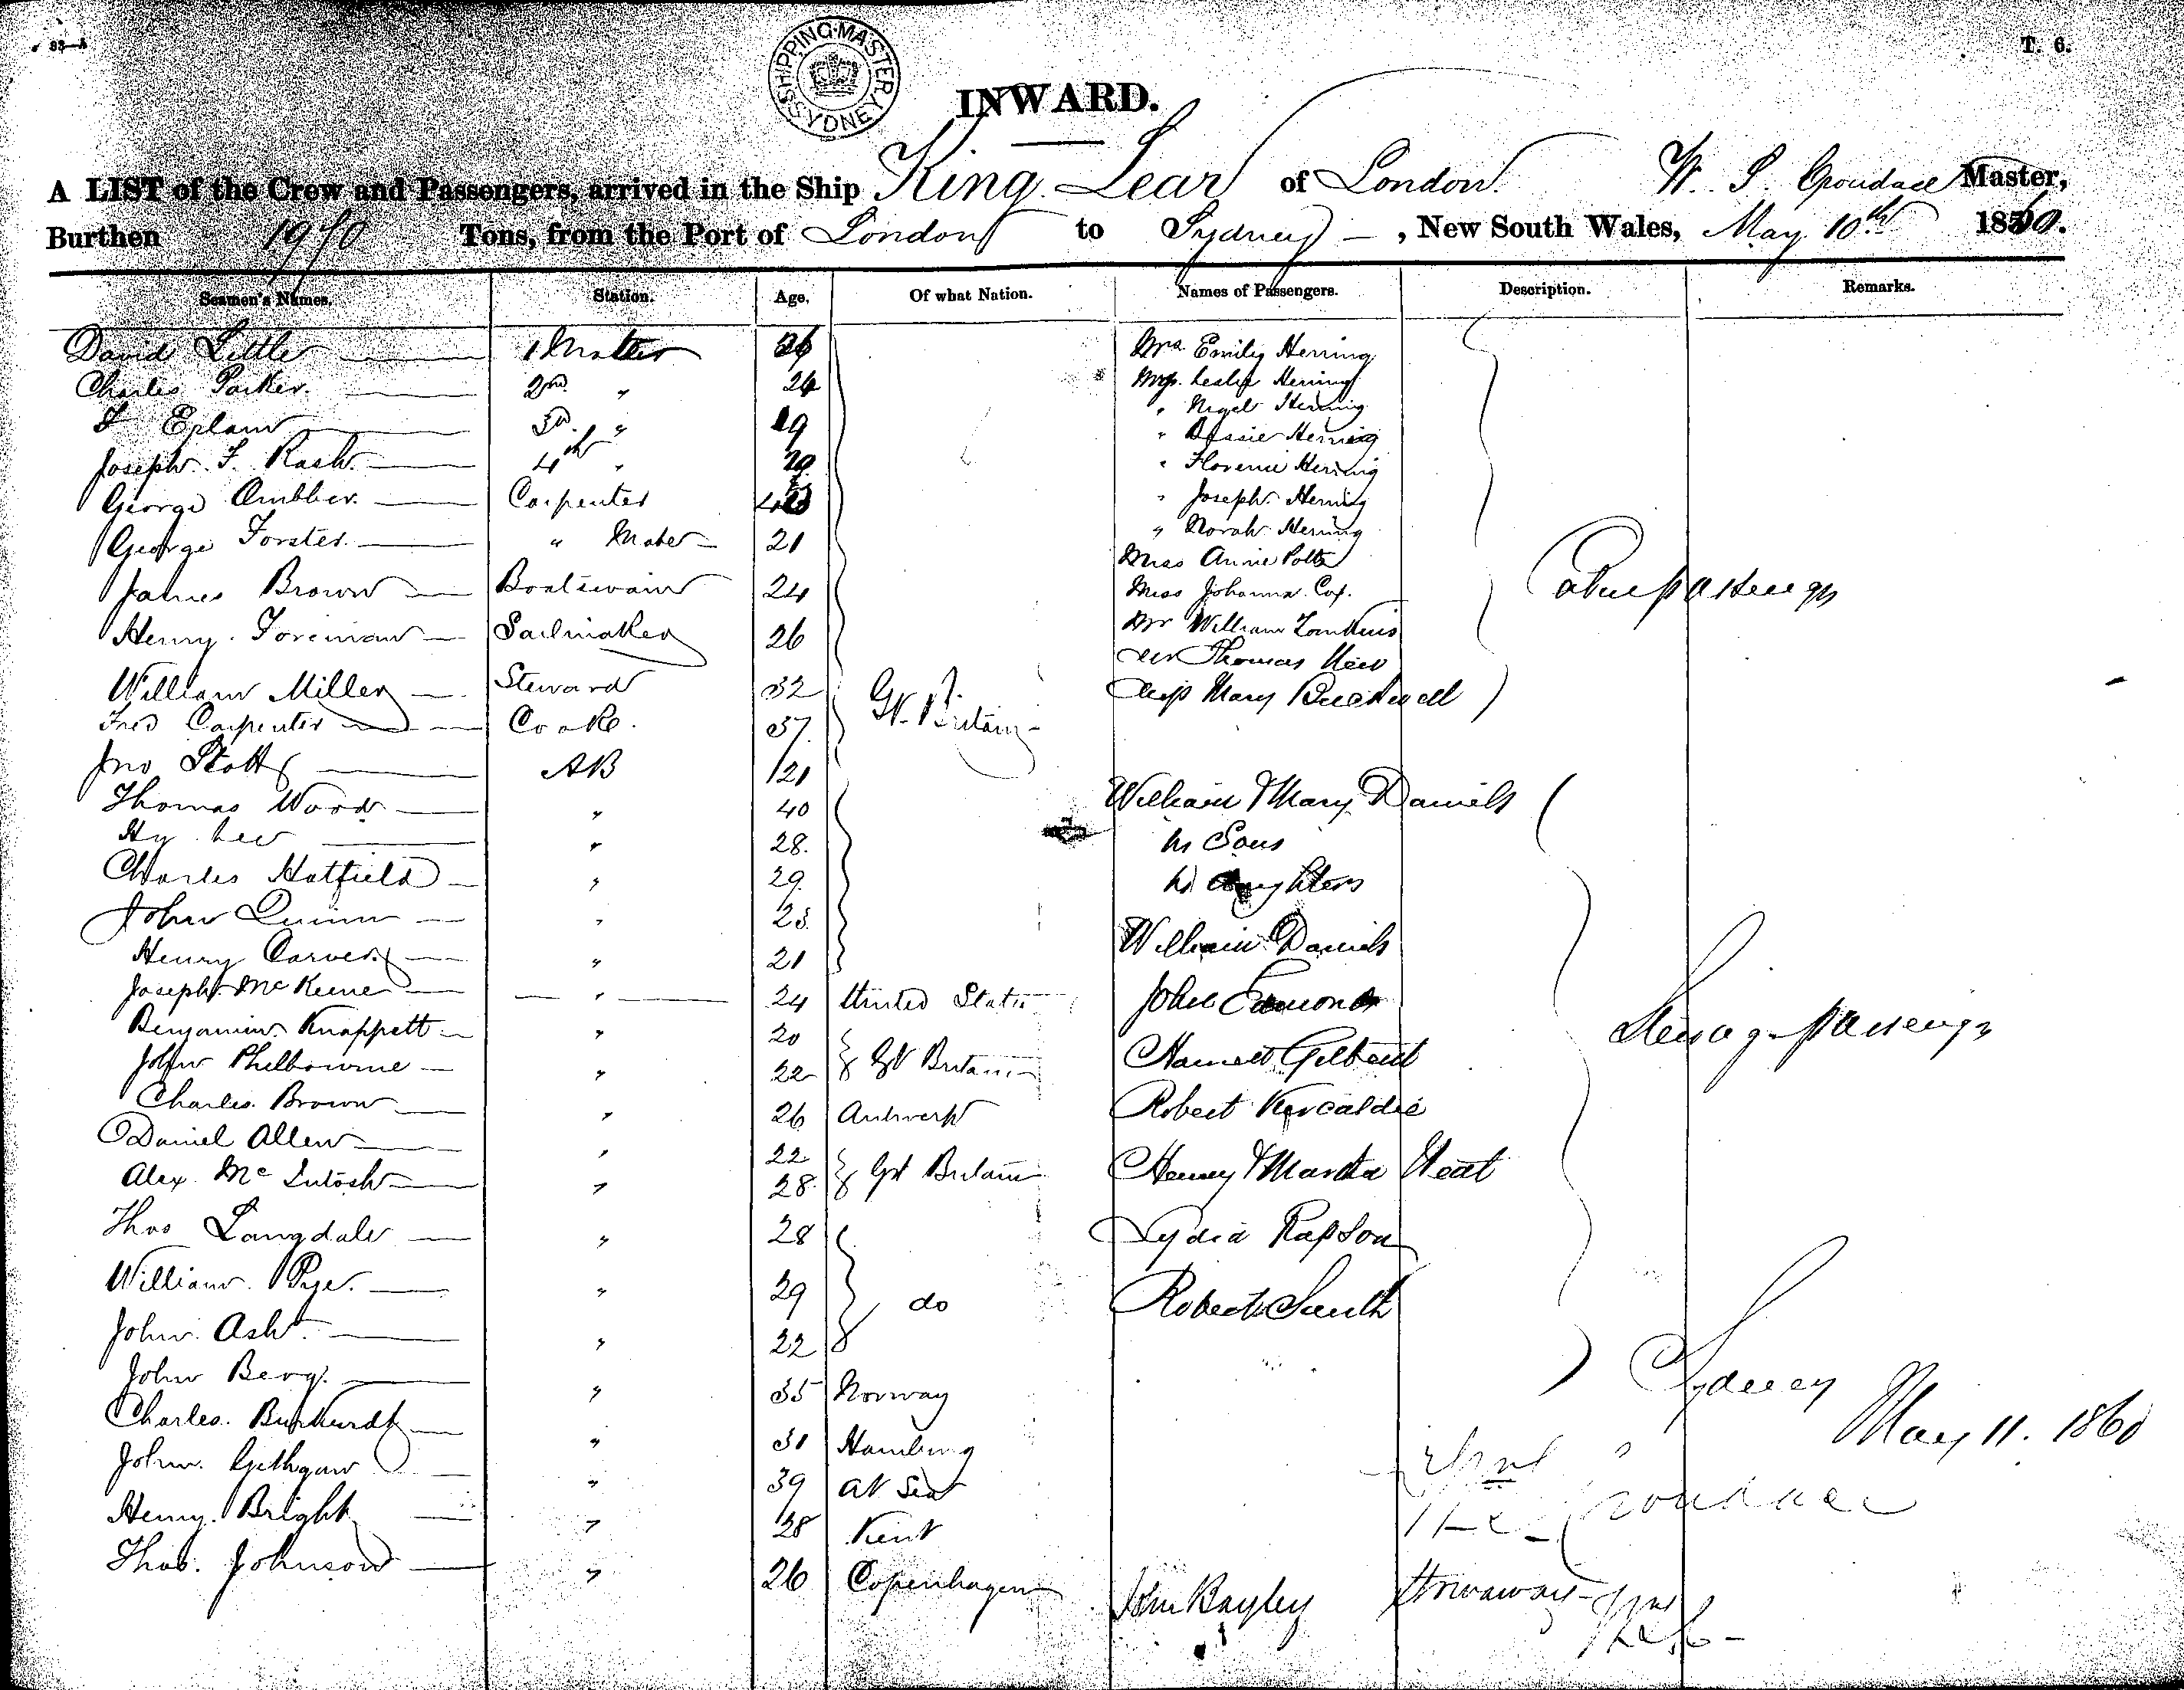 T. 6.
SHIPPING MASTER SYDNEY
INWARD.
A LIST of the Crew and Passengers, arrived in the Ship King Lear of London W. S. Croudace Master,
Burthen Tons, from the Port of London to Sydney, New South Wales, May 10th 1860.
Seamen's Names. Station. Age. Of what Nation. Names of Passengers. Description. Remarks.
David Little 1 Mate 26 Mrs Emily Herring
Charles Parker 2nd " 24 Leslie Herring
3rd " 19 " Nigel Herring
" Bessie Herring
Joseph F. Rash 4th " " Florence Herring
George Carpenter " Joseph Herring
George Forster " Mate 21 " Norah Herring
Miss Annie Potts
James Brown Boatswain 24 Miss Johanna Cox.
Henry Foreman Sailmaker 26 Mr William Tomkins
Mr Thomas
William Miller Steward 32 Gt. Britain Miss Mary
Fred Carpenter Cook 37
Jno Stott AB 21
Thomas Wood " 40 William & Mary Daniels
Hy Lee " 28 Sons
Charles Hatfield " 29 daughters
John Quinn " 23
Henry Carver " 21 William Daniels
Joseph McKeene " 24 United States John Edmonds
Benjamin Knappett " 20
John Philbourne " 22 Gt Britain Harriett Gilbert
Charles Brown " 26 Antwerp Robert Kircaldie
Daniel Allen " 22
Alex McIntosh " 28 Gt Britain Henry & Martha Neat
Thos Langdale " 28 Lydia Rapson
William Pye " 29 do Robert Smith
John Ash " 22
John Berg " 35 Norway
Charles Burkurdt " 31 Hamburg
John " 39 At Sea
Henry Bright " 28 Kent
Thos. Johnson " 26 Copenhagen John Bayley Stowaway
Cabin passengers
Steerage passengers
Sydney
May 11. 1860
Croudace